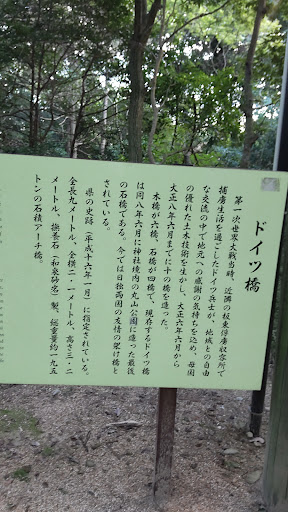 ドイツ橋
第一次世界大戦当時、近隣の板東俘虜収容所で
捕虜生活を過ごしたドイツ兵士が、地域との自由
な交流の中で地元への感謝の気持ちを込め、母国
の優れた土木技術を生かし、大正六年六月から
大正八年六月までに十の橋を造った。
木橋が六橋、石橋が四橋で、現存するドイツ橋
は同八年六月に神社境内の丸山公園に造った最後
の石橋である。今では日独両国の友情の架け橋と
されている。
県の史跡(平成十六年一月)に指定されている。
全長九メートル、全横二・一メートル、高さ三・二
メートル、撫養石(和泉砂岩)製、総重量約一九五
トンの石積アーチ橋。